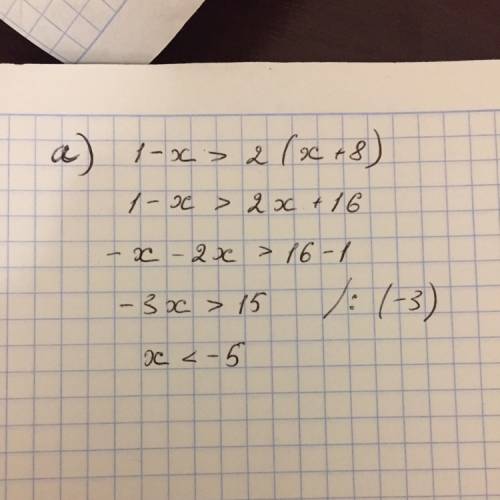 a) 1 - x > 2 (x + 8)
1 - x > 2x + 16
- x - 2x > 16 - 1
- 3x > 15 /: (-3)
x < - 5